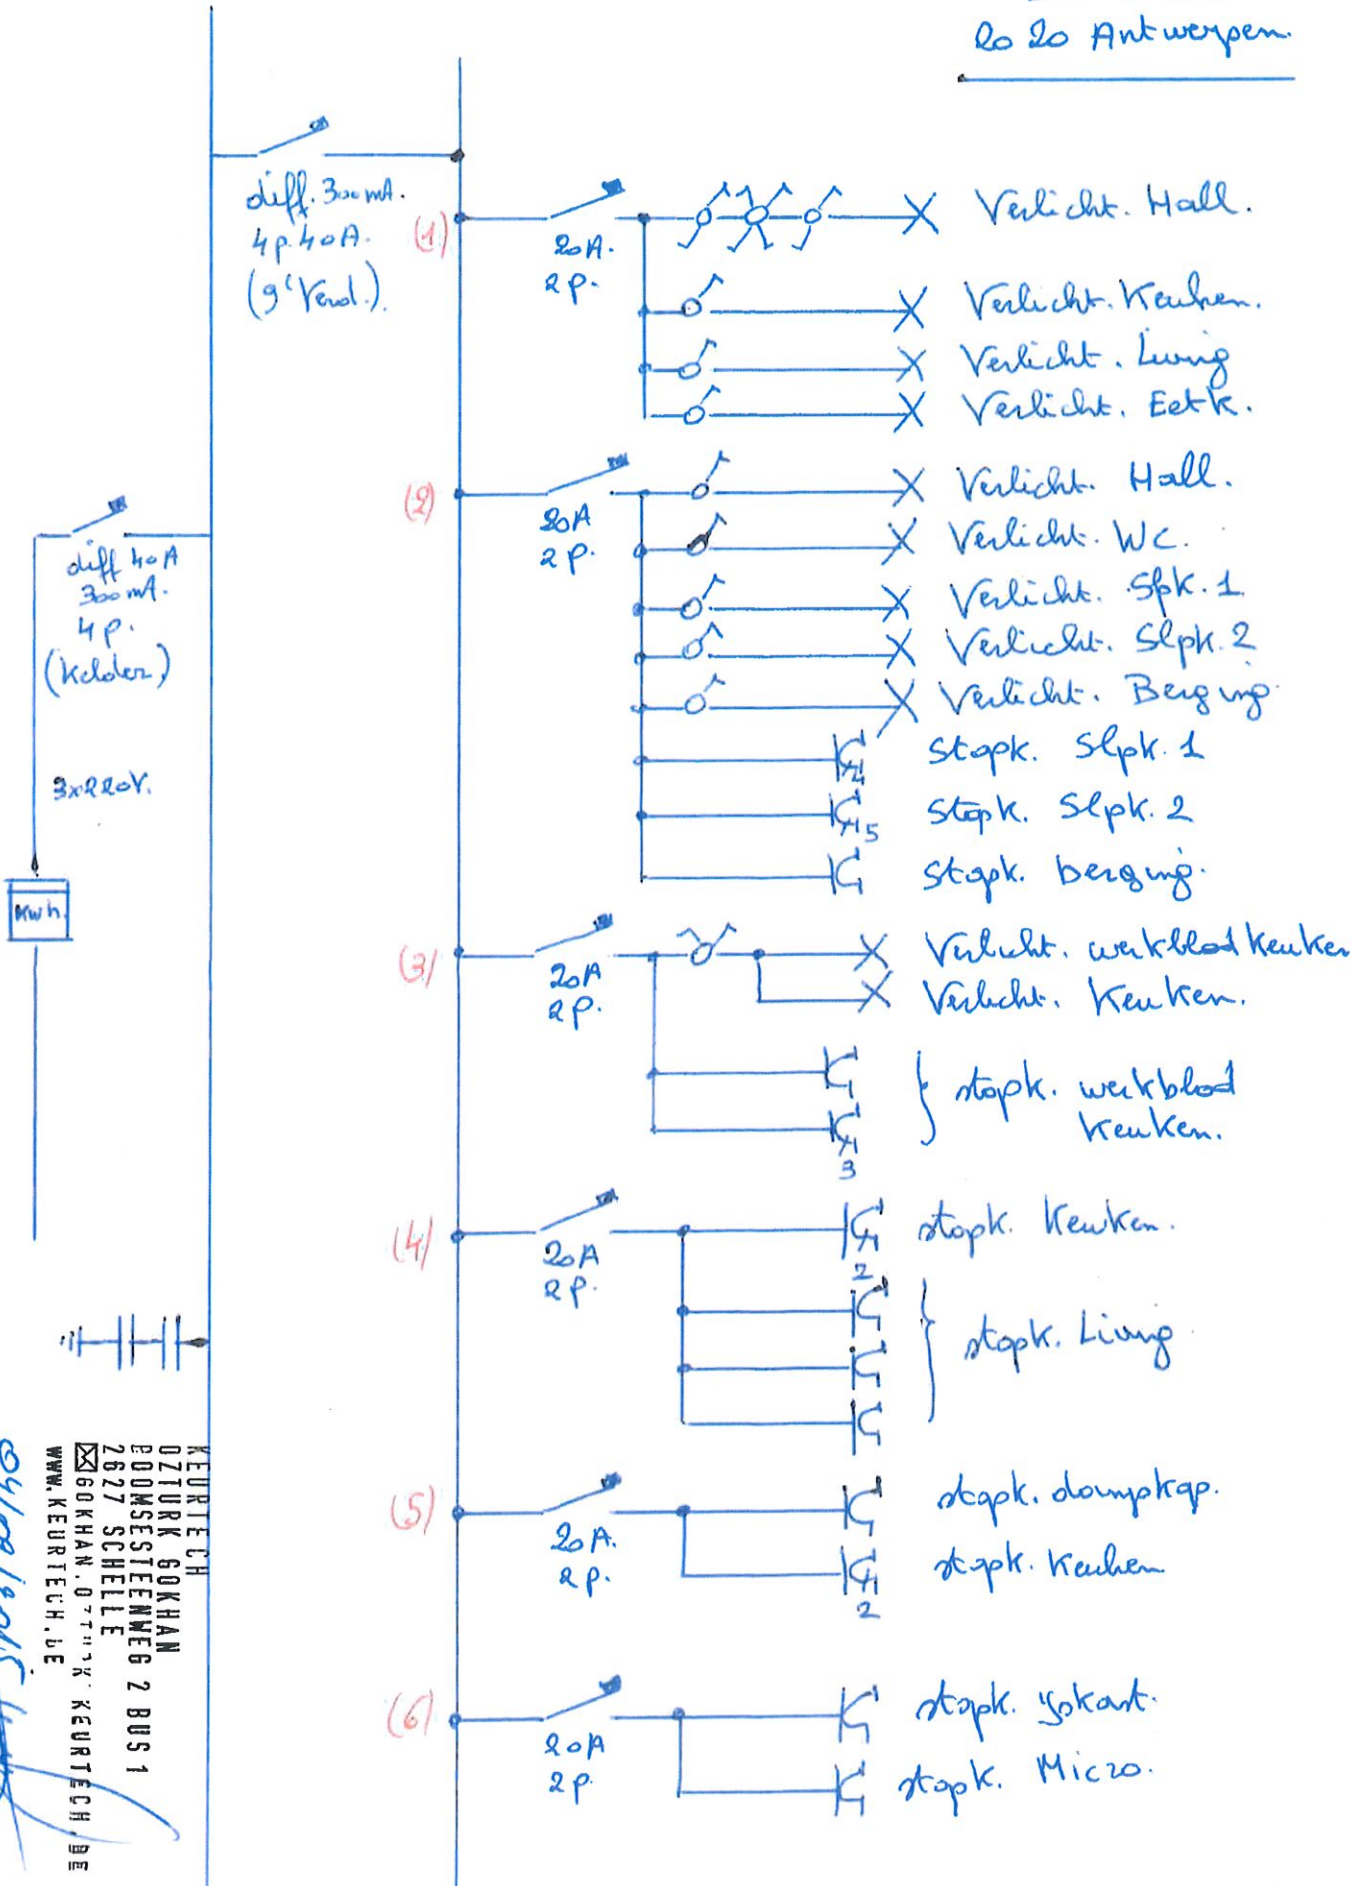 2020 Antwerpen.
diff. 300mA.
4p. 40A.
(9e Verd.).
(1)
20A.
2p.
Verlicht. Hall.
Verlicht. Keuken.
Verlicht. Living
Verlicht. Eetk.
(2)
20A
2p.
Verlicht. Hall.
Verlicht. WC.
Verlicht. Slpk. 1
Verlicht. Slpk. 2
Verlicht. Berging.
Stopk. Slpk. 1
4
Stopk. Slpk. 2
5
Stopk. berging.
diff 40A
300mA.
4p.
(Kelder)
3x220V.
Kwh.
(3)
20A
2p.
Verlicht. werkblad keuken
Verlicht. Keuken.
stopk. werkblad
keuken.
3
(4)
20A
2p.
stopk. Keuken.
2
stopk. Living
(5)
20A.
2p.
stopk. dampkap.
stopk. Keuken
2
(6)
20A
2p.
stopk. ijskast.
stopk. Micro.
KEURTECH
OZTURK GOKHAN
BOOMSESTEENWEG 2 BUS 1
2627 SCHELLE
WWW.KEURTECH.BE